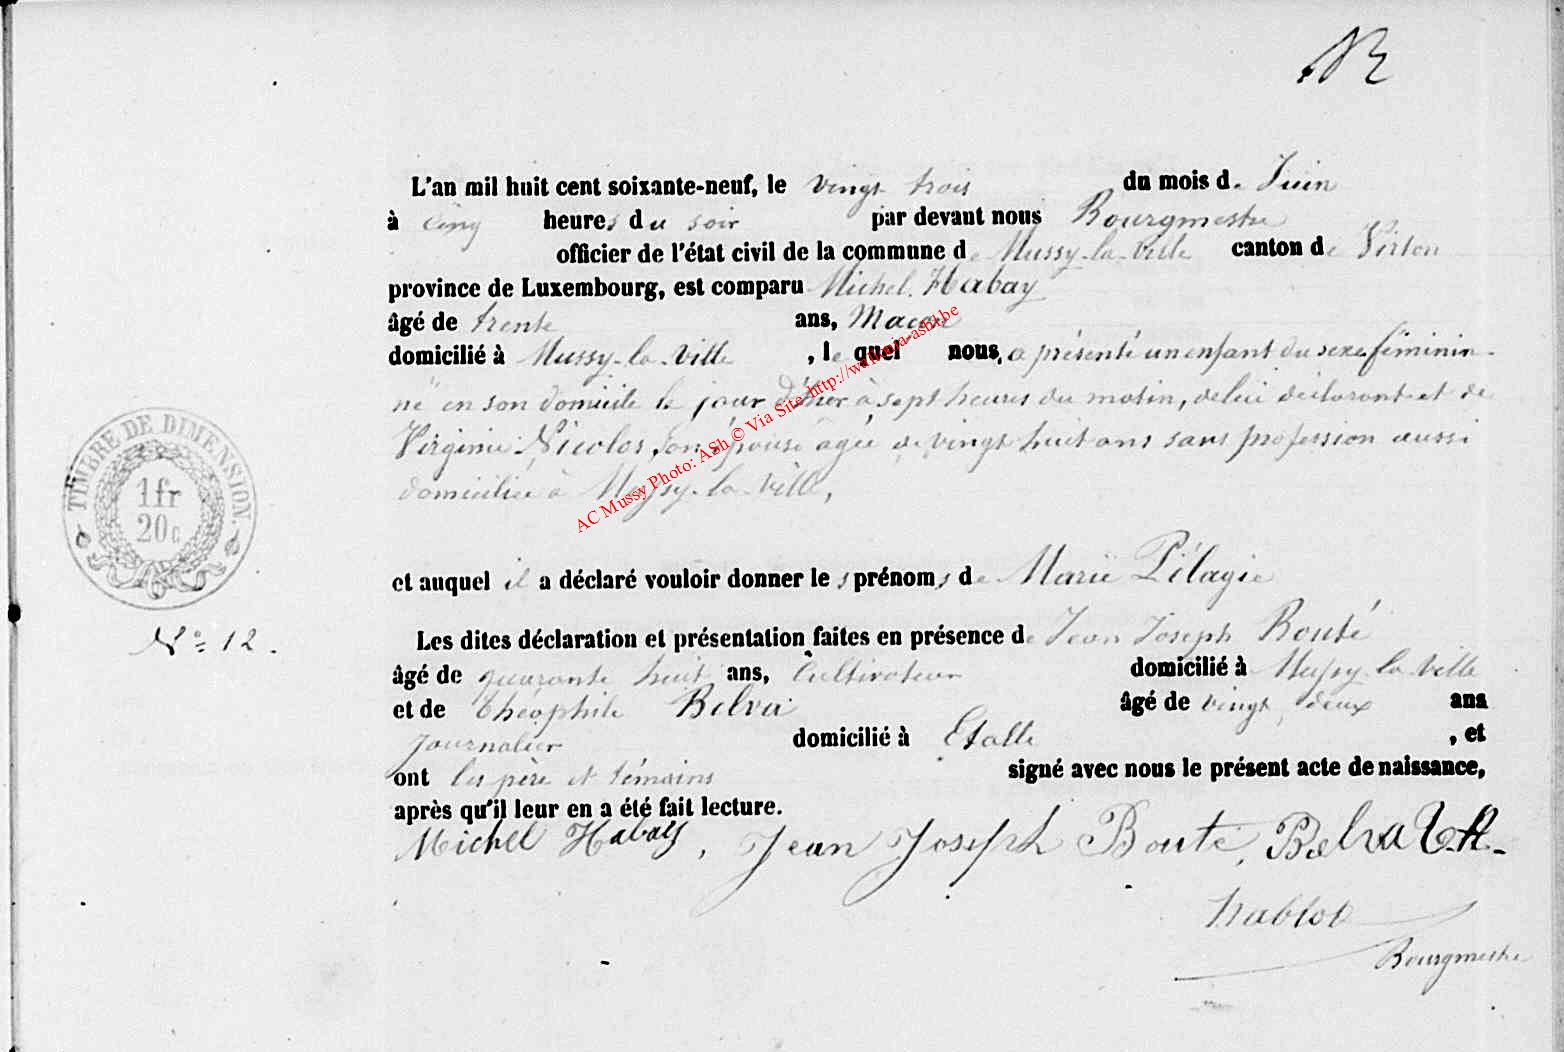 L'an mil huit cent soixante-neuf, le vingt trois du mois de Juin
à cinq heures du soir par devant nous Bourgmestre
officier de l'état civil de la commune de Mussy-la-Ville canton de Virton
province de Luxembourg, est comparu Michel Habay
âgé de trente ans, Maçon
domicilié à Mussy-la-Ville, lequel nous, a présenté un enfant du sexe féminin
né en son domicile le jour d'hier à sept heures du matin, de lui déclarant et de
Virginie Nicolas, son épouse âgée de vingt huit ans sans profession aussi
domiciliée à Mussy-la-Ville,
AC Mussy Photo: ASh © Via Site http://wallonia-ash1.be
TIMBRE DE DIMENSION.
1 fr
20 c
et auquel il a déclaré vouloir donner les prénoms de Marie Pélagie
N° 12.
Les dites déclaration et présentation faites en présence de Jean Joseph Bouté
âgé de quarante huit ans, Cultivateur domicilié à Mussy-la-Ville
et de Théophile Belva âgé de vingt deux ans
Journalier domicilié à Etalle, et
ont les père et témoins signé avec nous le présent acte de naissance,
après qu'il leur en a été fait lecture.
Michel Habay, Jean Joseph Boute, Belva
Bourgmestre